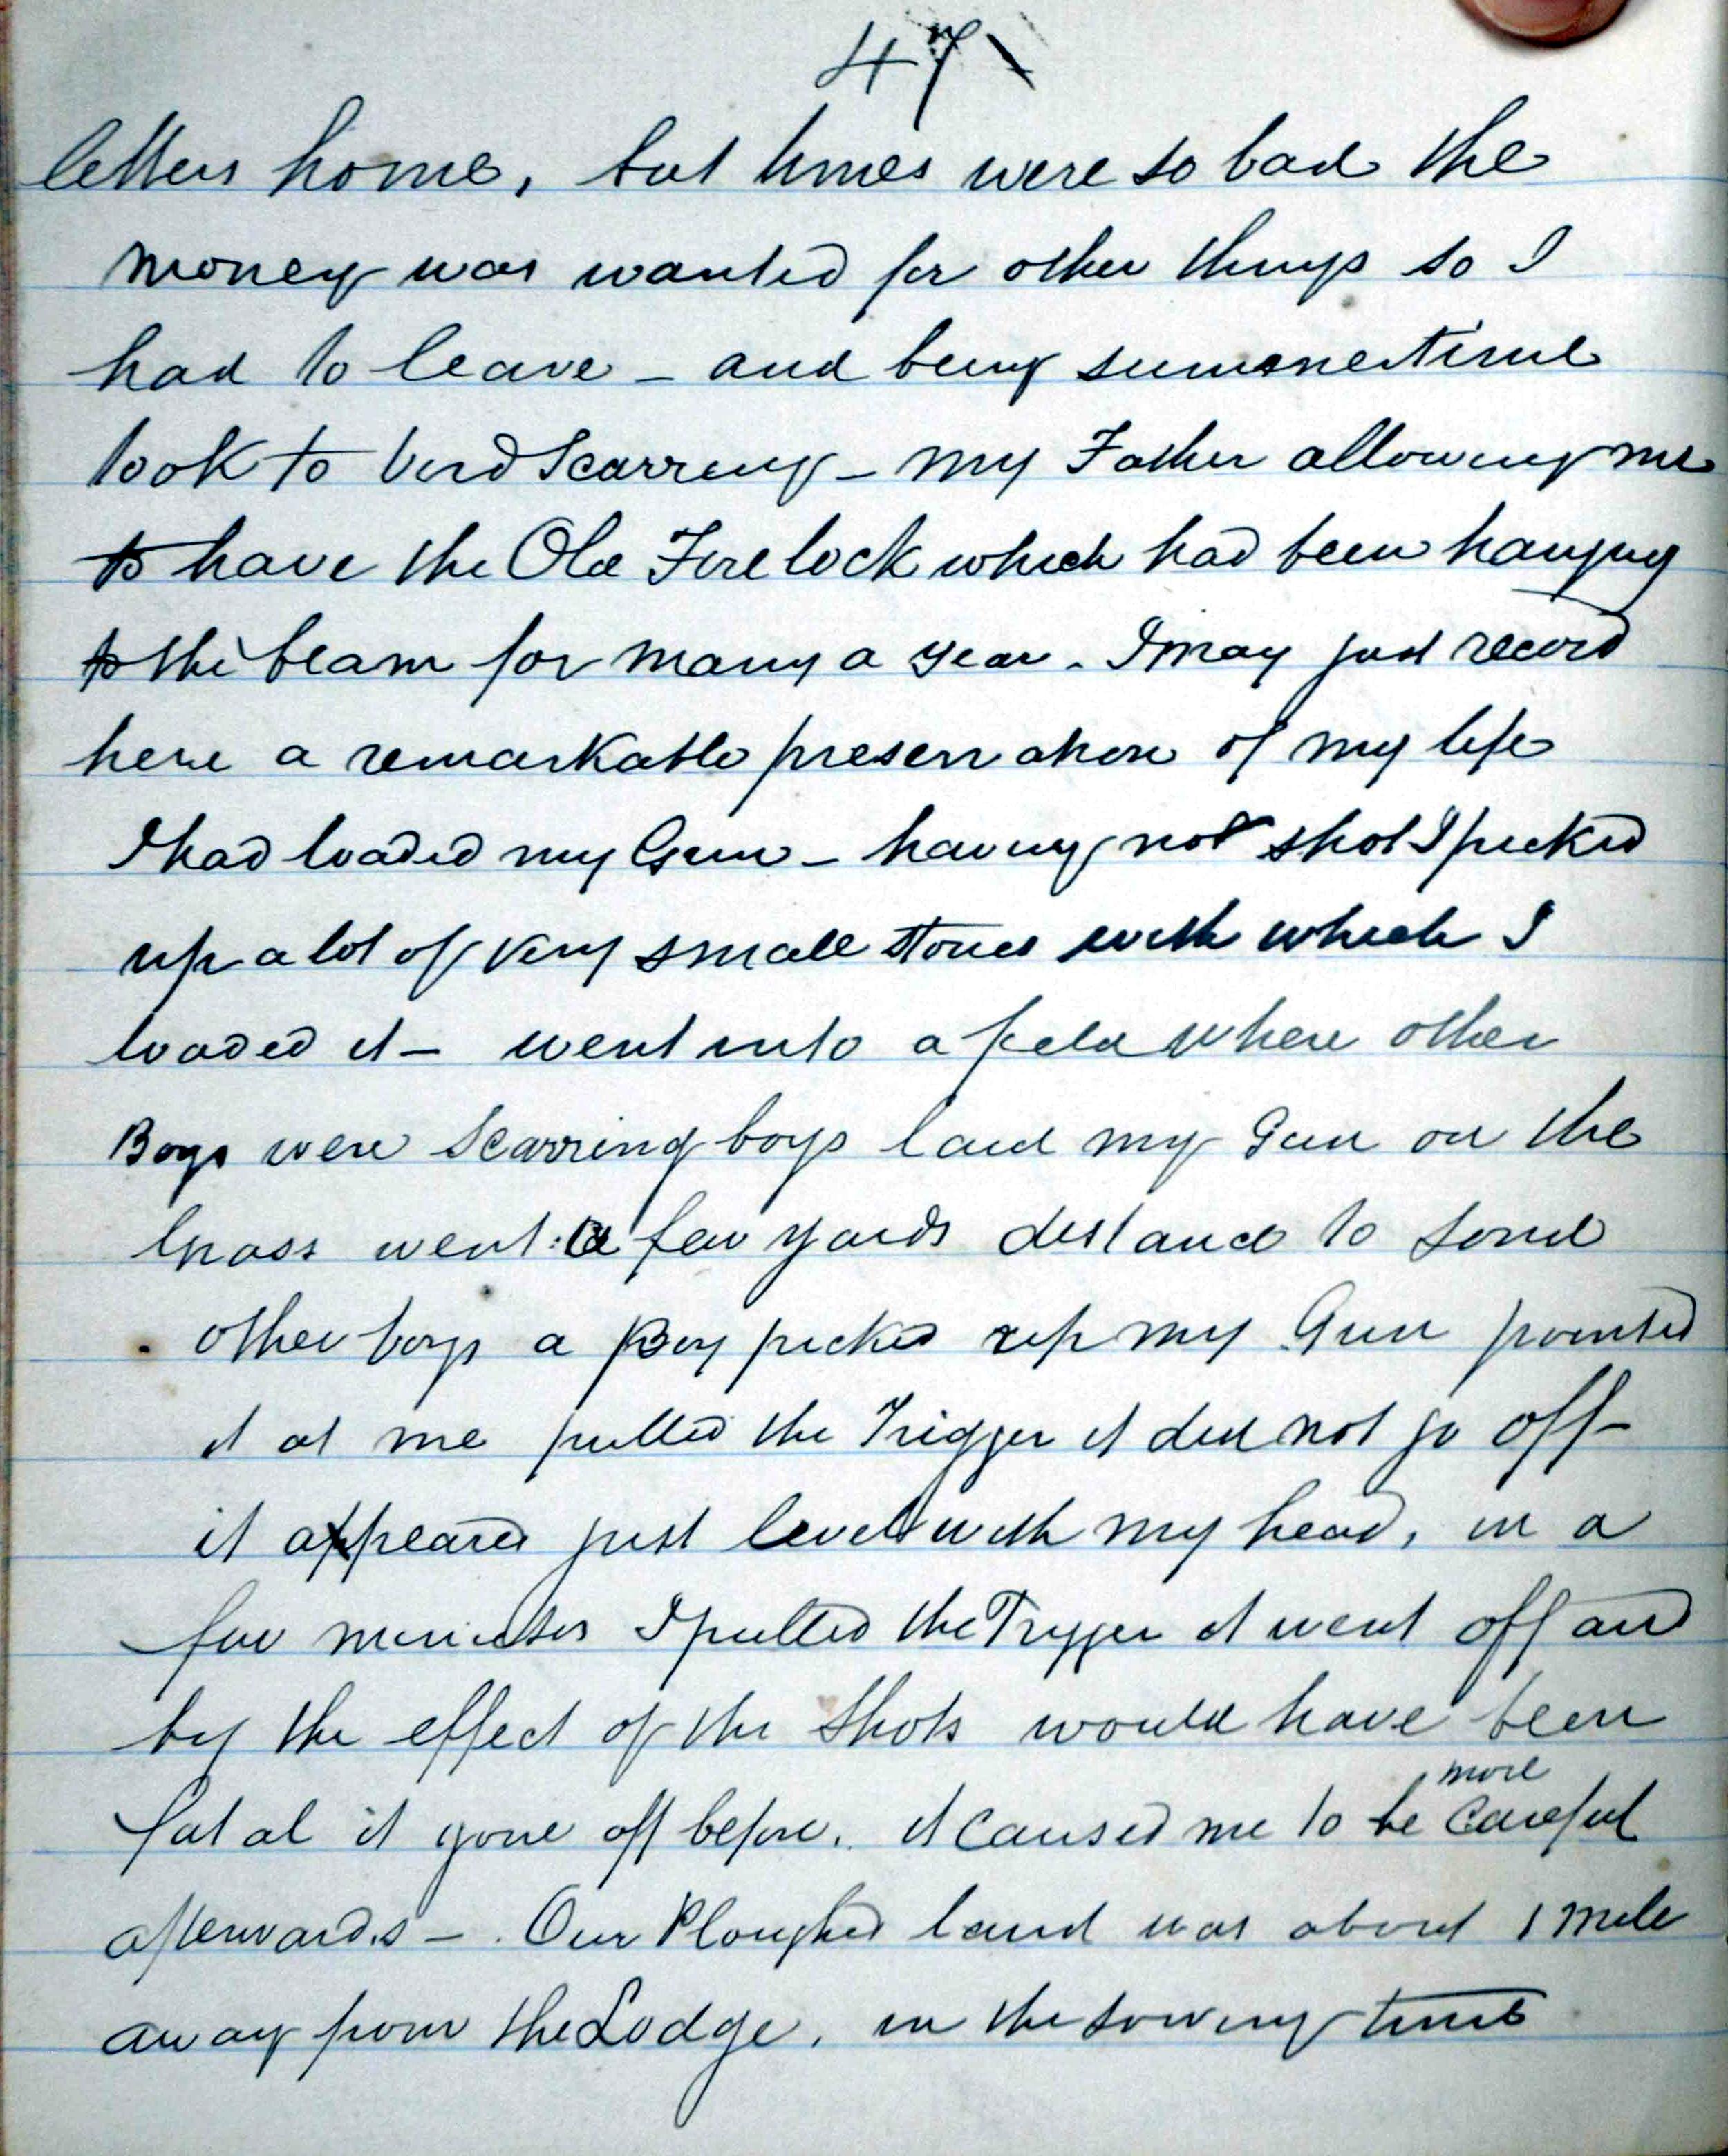 47
letters home, but times were so bad the
money was wanted for other things so I
had to leave - and being summertime
took to bird Scarring - my Father allowing me
to have the Old Firelock which had been hanging
to the beam for many a year. I may just record
here a remarkable preservation of my life
I had loaded my Gun - having not shot I picked
up a lot of very small stones with which I
loaded it - went into a field where other
Boys were Scarring boys laid my Gun on the
Grass went a few yards distance to some
other boys a Boy picked up my Gun pointed
it at me pulled the Trigger it did not go off -
it appeared just level with my head, in a
few minutes I pulled the Trigger it went off and
by the effect of the Shots would have been
more
fatal it gone off before. it caused me to be careful
afterwards - . Our Ploughed land was about 1 mile
away from the Lodge. in the sowing time